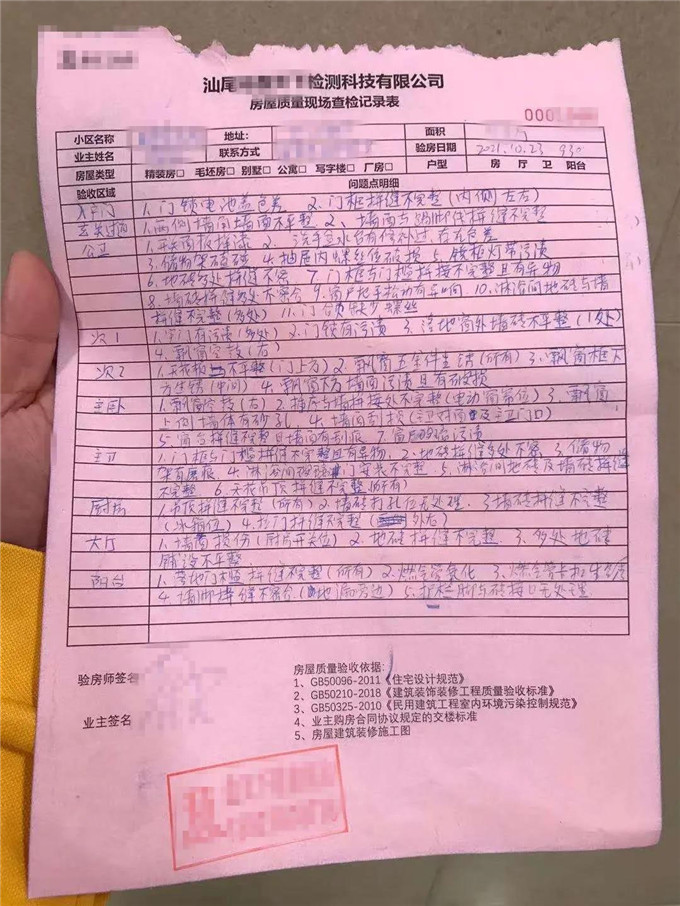 汕尾 检测科技有限公司
房屋质量现场查检记录表
000
小区名称 地址: 面积
业主姓名 联系方式 验房日期 2021.10.23 930
房屋类型 精装房□ 毛坯房□ 别墅□ 公寓□ 写字楼□ 厂房□ 户型 房 厅 卫 阳台
验收区域 问题点明细
入户门 1、门锁电池盖色差 2、门框拼缝不完整(内侧左右)
玄关过道 1、两侧墙面墙面不平整 2、墙面与 拼缝不完整
公卫 1、开关面板掉漆 2、洗手盆水台有修补过,右右色差
3、储物架破碎 4、抽屉内螺丝位破损 5、镜柜灯带污渍
6、地砖多处拼缝不密 7、门框与门槛拼接不完整且有异物
8、墙砖拼缝多处不密合 9、窗户把手拉动有异响 10、淋浴间地砖与墙
拼缝不完整(多处) 11、门合页缺少螺丝
次1 1、房门有污渍(多处) 2、门锁有污渍 3、落地窗外墙砖不平整(1处)
4、飘窗空鼓(右)
次2 1、天花板不平整(门上方) 2、飘窗五金件生锈(所有) 3、飘窗框下
方生锈(中间) 4、飘窗下方墙面污渍且有破损
主卧 1、飘窗空鼓(右) 2、插座与墙拼接处不完整(电动窗帘位) 3、飘窗
上侧墙体有砂孔 4、墙面刮损(主卫对面及主卫门口)
5、窗台拼缝不完整且墙面有刮痕 7、窗户外沿污渍
主卫 1、门框与门槛拼缝不完整且有异物 2、地砖拼缝多处不密 3、储物
架有磨痕 4、淋浴间玻璃门安装不完整 5、淋浴间地砖及墙砖拼缝
不完整 6、天花吊顶拼缝不完整(所有)
厨房 1、吊顶拼缝不完整(所有) 2、墙砖打孔位无处理 3、墙砖拼缝不完整
(冰箱位) 4、移门拼缝不完整( 外右)
大厅 1、墙面损伤(厨房开关位) 2、地砖拼缝不完整 3、多处地砖
铺设不平整
阳台 1、落地门槛拼缝不完整(所有) 2、燃气管氧化 3、燃气管卡扣生锈
4、墙脚拼缝不密合(地漏旁边) 5、护栏脚与砖接口无处理
验房师签名
业主签名
房屋质量验收依据:
1、GB50096-2011《住宅设计规范》
2、GB50210-2018《建筑装饰装修工程质量验收标准》
3、GB50325-2010《民用建筑工程室内环境污染控制规范》
4、业主购房合同协议规定的交楼标准
5、房屋建筑装修施工图